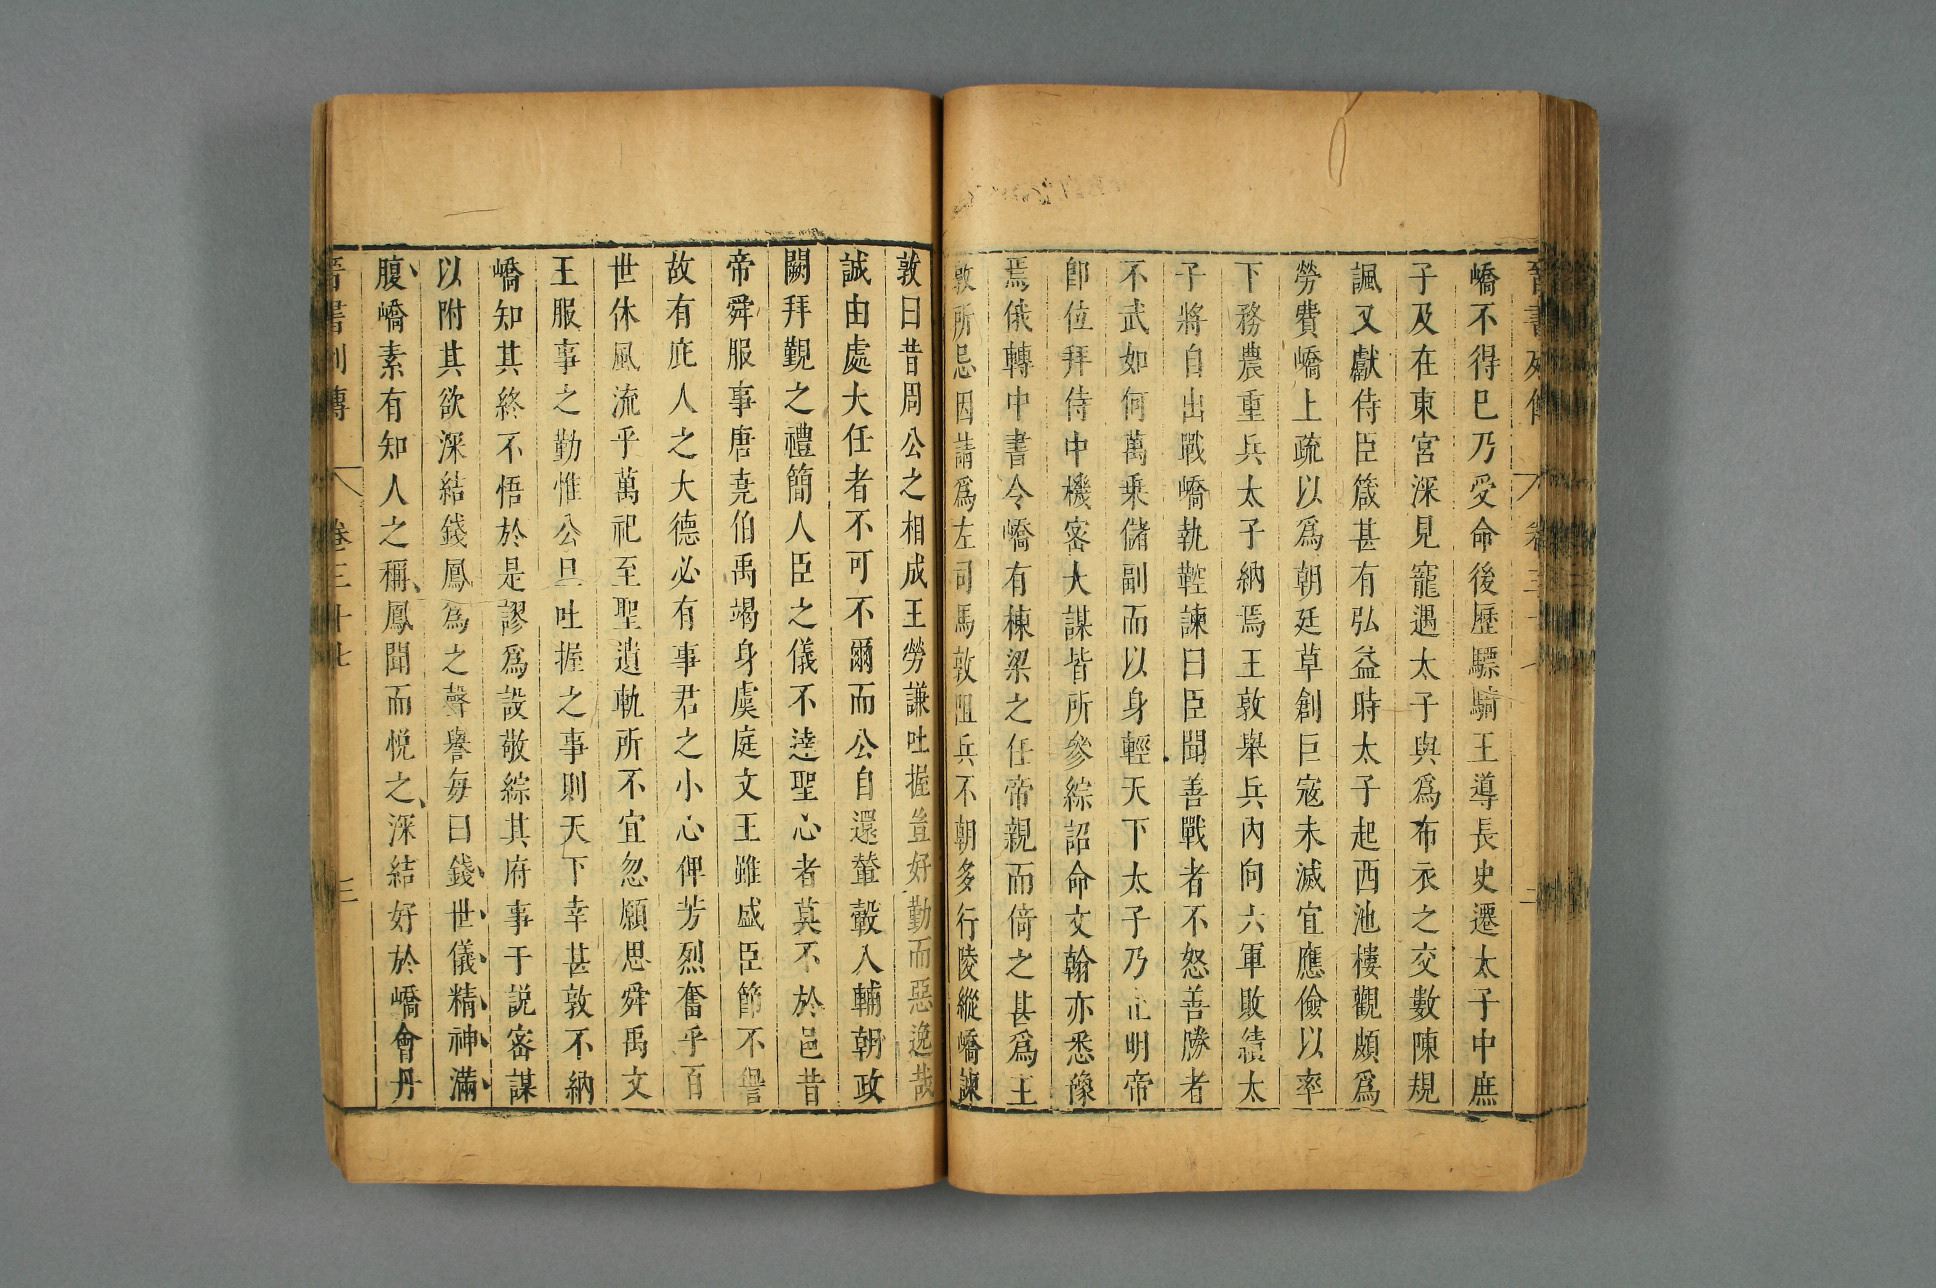 嶠不得巳乃受命後歷驃騎王導長史遷太子中庶
子及在東宮深見寵遇太子與爲布衣之交數陳規
諷又獻侍臣箴甚有弘益時太子起西池樓觀頗爲
勞費嶠上疏以爲朝廷草創巨寇未滅宜應儉以率
下務農重兵太子納焉王敦舉兵内向六軍敗績太
子將自出戰嶠執鞚諫曰臣聞善戰者不怒善勝者
不武如何萬乗儲副而以身輕天下太子乃止明帝
卽位拜侍中機密大謀皆所參綜詔命文翰亦悉豫
焉俄轉中書令嶠有棟梁之任帝親而倚之甚爲王
敦所忌因請爲左司馬敦阻兵不朝多行陵縱嶠諫
敦曰昔周公之相成王勞謙吐握豈好勤而惡逸哉
誠由處大任者不可不爾而公自還輦轂入輔朝政
闕拜覲之禮簡人臣之儀不達聖心者莫不於邑昔
帝舜服事唐堯伯禹竭身虞庭文王雖盛臣節不諐
故有庇人之大德必有事君之小心俾芳烈奮乎百
世休風流乎萬祀至聖遺軌所不宜忽願思舜禹文
王服事之勤惟公旦吐握之事則天下幸甚敦不納
嶠知其終不悟於是謬爲設敬綜其府事干説密謀
以附其欲深結錢鳳爲之聲譽每曰錢世儀精神滿
腹嶠素有知人之稱鳳聞而悦之深結好於嶠會丹
晉書列傳 卷三十七 三